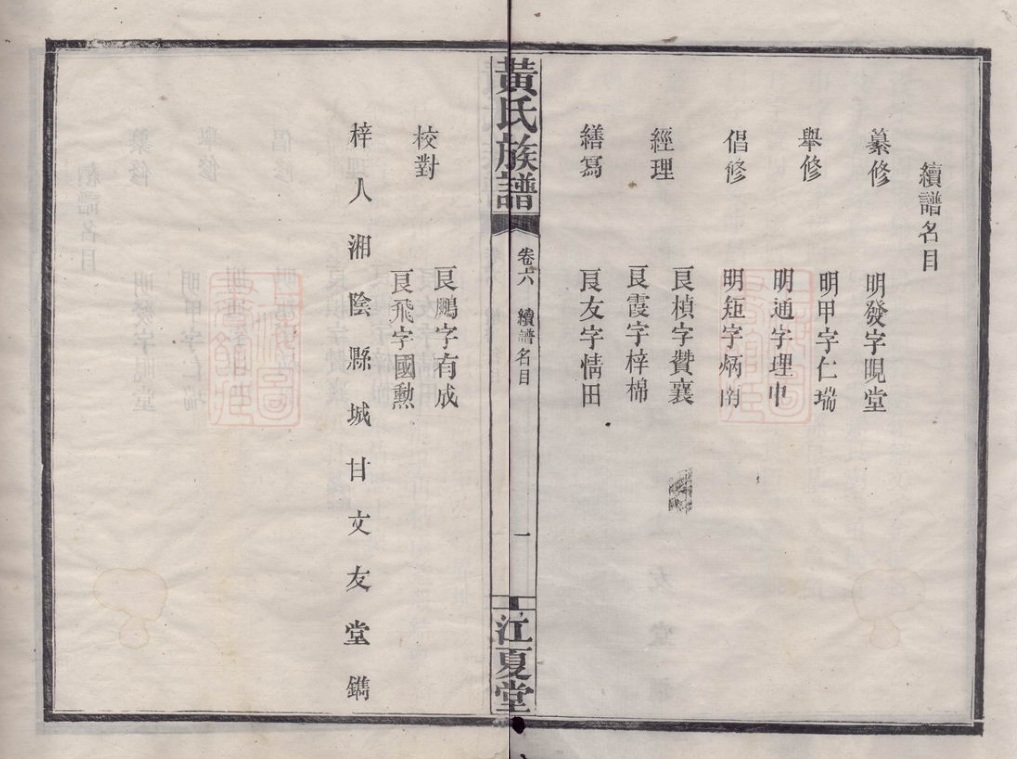 續譜名目
纂修
明發字睍堂
舉修
明甲字仁瑞
明通字理中
倡修
明矩字炳南
經理
良楨字贊襄
良霞字梓棉
繕寫
良友字情田
黃氏族譜
卷六
續譜名目
一
江夏堂
校對
良鵬字有成
良飛字國勲
梓人湘陰縣城甘文友堂鐫